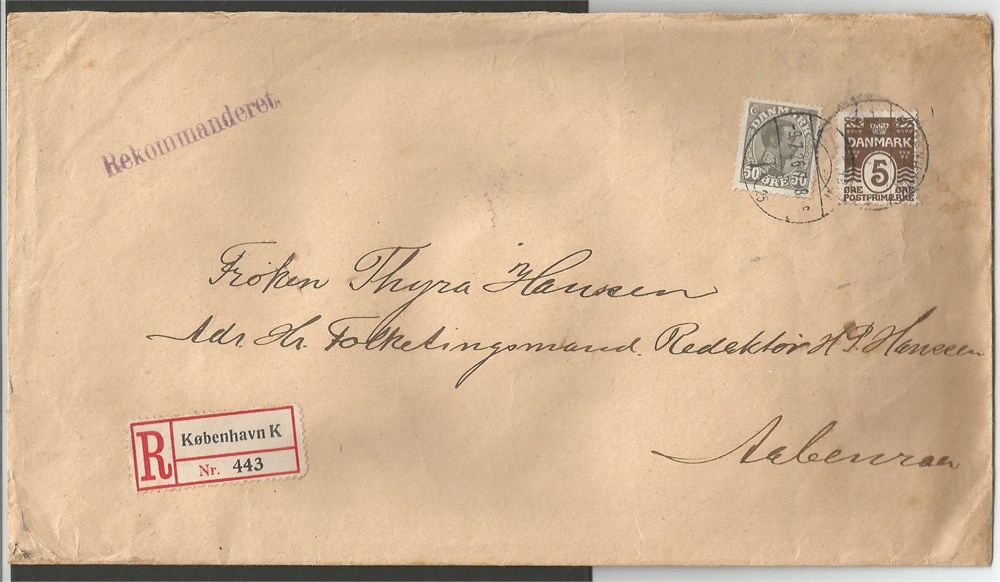 Rekommanderet.
DANMARK
50 ØRE 50
DANMARK
5
ØRE ØRE
POSTFRIMÆRKE
Frøken Thyra Hanssen
Adr. Hr. Folketingsmand. Redaktør H. P. Hanssen
Aabenraa
R
København K
Nr. 443